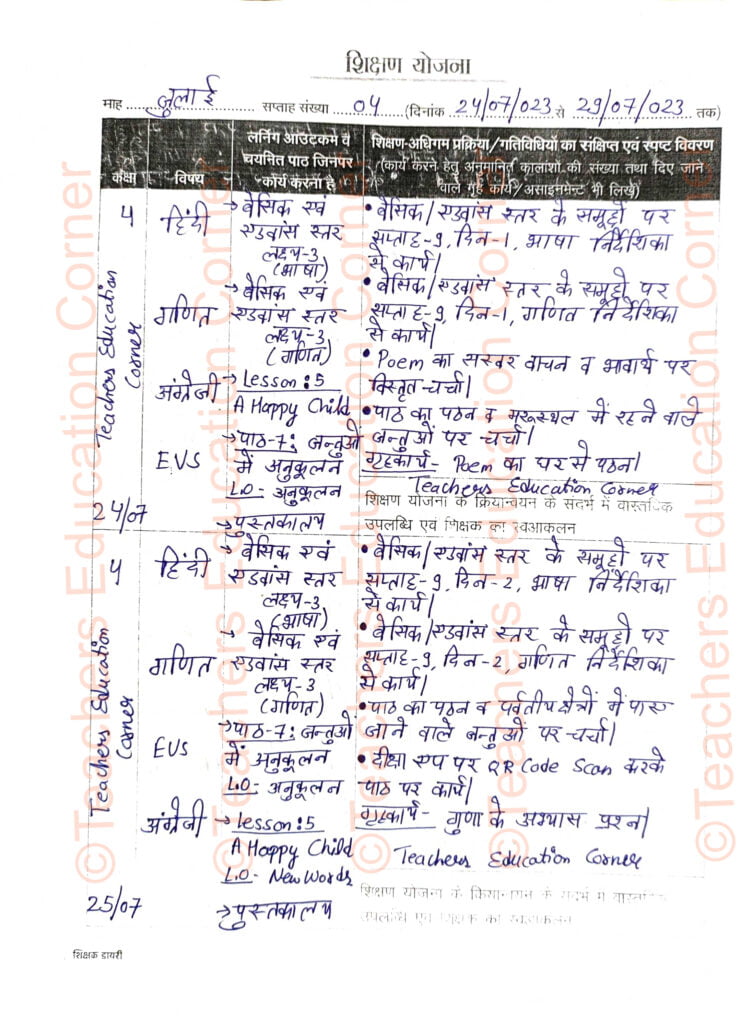 शिक्षण योजना
माह ..... जुलाई ..... सप्ताह संख्या ..... 04 ..... (दिनांक 24/07/023 से 29/07/023 तक)
कक्षा
विषय
लर्निंग आउटकम व
चयनित पाठ जिनपर
कार्य करना है
शिक्षण-अधिगम प्रक्रिया/गतिविधियों का संक्षिप्त एवं स्पष्ट विवरण
(कार्य करने हेतु अनुमानित कालांशों की संख्या तथा दिए जाने
वाले गृह कार्य/असाइनमेन्ट भी लिखें)
4
हिंदी
→ बेसिक एवं
एडवांस स्तर
लक्ष्य-3
(भाषा)
• बेसिक/एडवांस स्तर के समूहों पर
सप्ताह-9, दिन-1, भाषा निर्देशिका
से कार्य।
गणित
→ बेसिक एवं
एडवांस स्तर
लक्ष्य-3
(गणित)
• बेसिक/एडवांस स्तर के समूहों पर
सप्ताह-9, दिन-1, गणित निर्देशिका
से कार्य।
अंग्रेजी
→ Lesson:5
A Happy Child
• Poem का सस्वर वाचन व भावार्थ पर
विस्तृत-चर्चा।
EVS
→ पाठ-7: जन्तुओं
में अनुकूलन
L.O- अनुकूलन
→ पुस्तकालय
• पाठ का पठन व मरूस्थल में रहने वाले
जन्तुओं पर चर्चा।
गृहकार्य- Poem का घर से पठन।
Teachers Education Corner
Teachers Education
Corner
24/07
शिक्षण योजना के क्रियान्वयन के संदर्भ में वास्तविक
उपलब्धि एवं शिक्षक का स्वआकलन
4
हिंदी
→ बेसिक एवं
एडवांस स्तर
लक्ष्य-3
(भाषा)
• बेसिक/एडवांस स्तर के समूहों पर
सप्ताह-9, दिन-2, भाषा निर्देशिका
से कार्य।
गणित
→ बेसिक एवं
एडवांस स्तर
लक्ष्य-3
(गणित)
• बेसिक/एडवांस स्तर के समूहों पर
सप्ताह-9, दिन-2, गणित निर्देशिका
से कार्य।
EVS
→ पाठ-7: जन्तुओं
में अनुकूलन
L.O- अनुकूलन
• पाठ का पठन व पर्वतीय क्षेत्रों में पाए
जाने वाले जन्तुओं पर चर्चा।
• दीक्षा एप पर QR Code Scan करके
पाठ पर कार्य।
अंग्रेजी
→ Lesson:5
A Happy Child
L.O- New Words
→ पुस्तकालय
गृहकार्य- गुणा के अभ्यास प्रश्न।
Teachers Education Corner
Teachers Education
Corner
25/07
शिक्षण योजना के क्रियान्वयन के संदर्भ में वास्तविक
उपलब्धि एवं शिक्षक का स्वआकलन
शिक्षक डायरी
©Teachers Education Corner
©Teachers Education Corner
©Teachers Education Corner
©Teachers Education Corner
©Teachers Education Corner